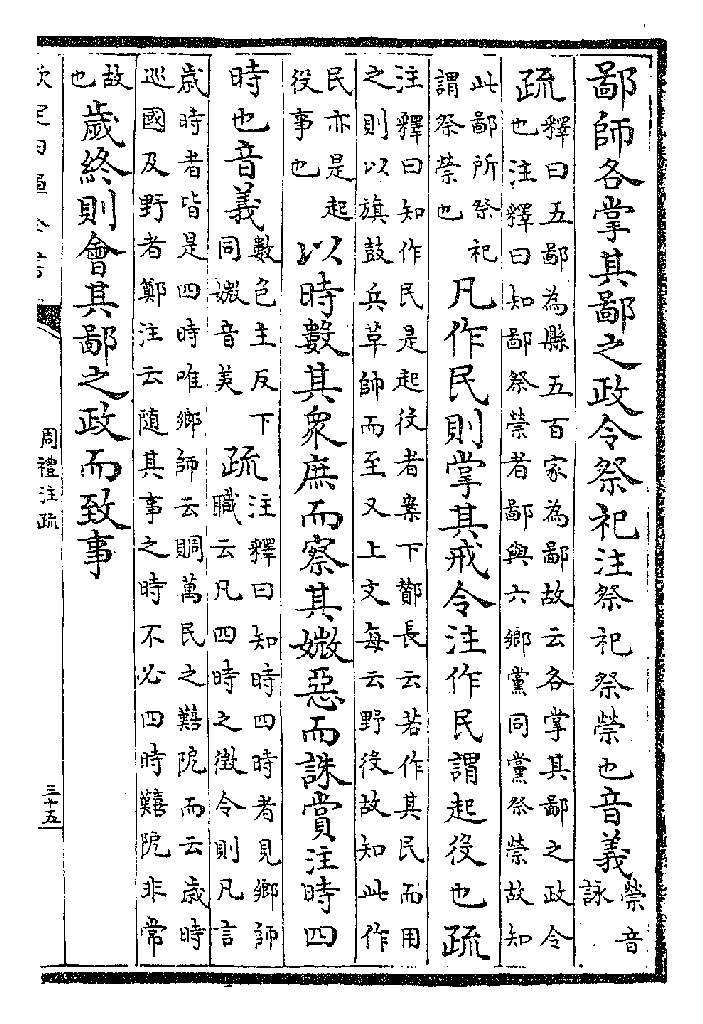 鄙師各掌其鄙之政令祭祀注祭祀祭禜也音義禜音
詠
疏釋曰五鄙為縣五百家為鄙故云各掌其鄙之政令
也注釋曰知鄙祭禜者鄙與六鄉黨同黨祭禜故知
此鄙所祭祀
謂祭禜也
凡作民則掌其戒令注作民謂起役也疏
注釋曰知作民是起役者案下酇長云若作其民而用
之則以旗鼓兵草師而至又上文每云野役故知此作
民亦是起
役事也
以時數其衆庶而察其媺惡而誅賞注時四
時也音義
數色主反下
同媺音美
疏
注釋曰知時四時者見鄉師
職云凡四時之徵令則凡言
歲時者皆是四時唯鄉師云賙萬民之囏阨而云歲時
巡國及野者鄭注云隨其事之時不必四時囏阨非常
故
也
歲終則會其鄙之政而致事
周禮注疏
三十五